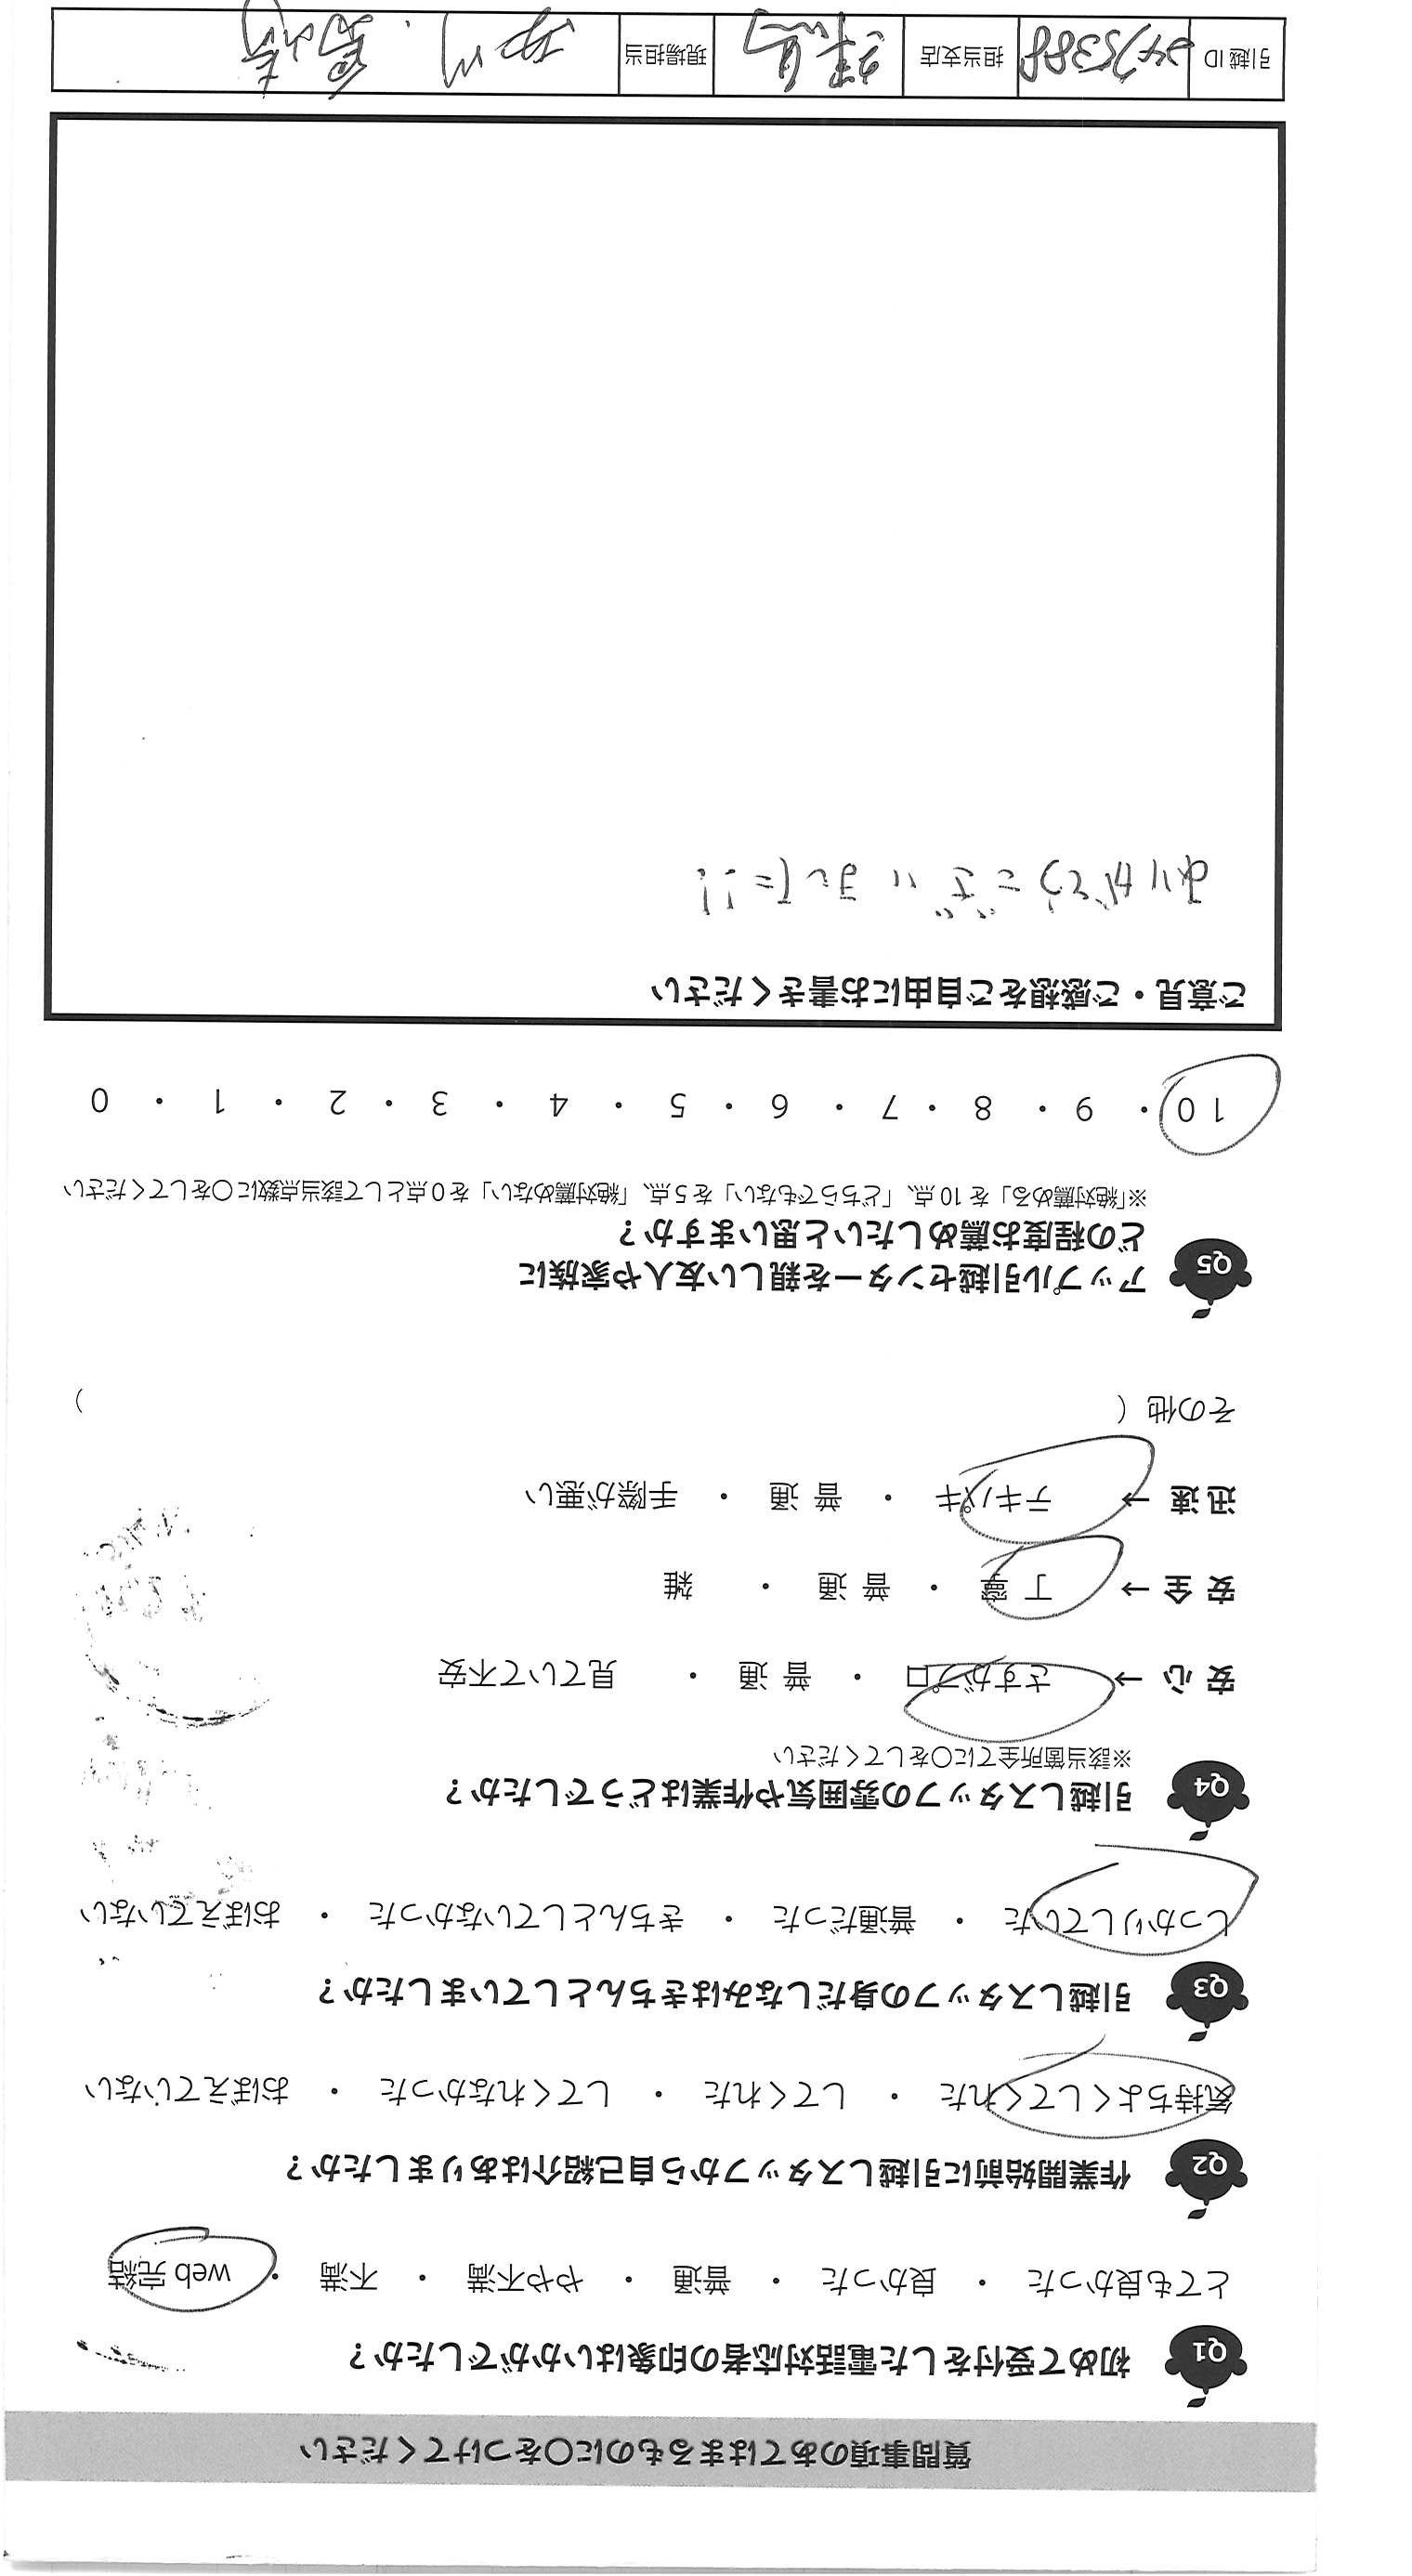 質問事項のあてはまるものに〇をつけてください
Q1 初めて受付をした電話対応者の印象はいかがでしたか？
とても良かった ・ 良かった ・ 普通 ・ やや不満 ・ 不満 ・ web 完結
Q2 作業開始前に引越しスタッフから自己紹介はありましたか？
気持ちよくしてくれた ・ してくれた ・ してくれなかった ・ おぼえていない
Q3 引越しスタッフの身だしなみはきちんとしていましたか？
しっかりしていた ・ 普通だった ・ きちんとしていなかった ・ おぼえていない
Q4 引越しスタッフの雰囲気や作業はどうでしたか？
※該当箇所全てに〇をしてください
安 心 → さすがプロ ・ 普 通 ・ 見ていて不安
安 全 → 丁 寧 ・ 普 通 ・ 雑
迅 速 → テキパキ ・ 普 通 ・ 手際が悪い
その他（ ）
Q5 アップル引越センターを親しい友人や家族に
どの程度お薦めしたいと思いますか？
※「絶対薦める」を 10 点、「どちらでもない」を 5 点、「絶対薦めない」を 0 点として該当点数に〇をしてください
10 ・ 9 ・ 8 ・ 7 ・ 6 ・ 5 ・ 4 ・ 3 ・ 2 ・ 1 ・ 0
ご意見・ご感想をご自由にお書きください
ありがとうございました!!
引越 ID 2475388 担当支店 練馬 現場担当